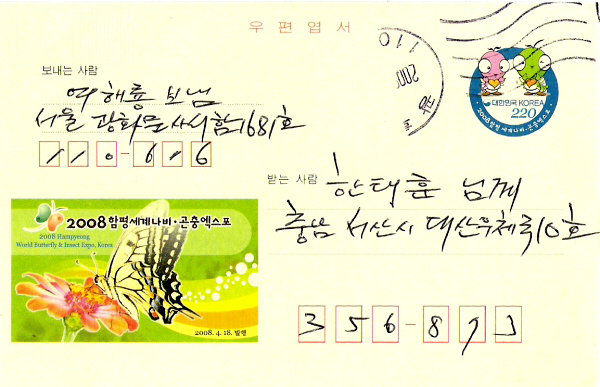 우편엽서
110
200
보내는 사람
여해룡 보냄
서울 광화문 사서함 1681호
110-616
대한민국 KOREA
220
2008함평세계나비·곤충엑스포
받는 사람
한태훈 님께
충남 서산시 대산우체국 10호
356-891
2008함평세계나비·곤충엑스포
2008 Hampyeong
World Butterfly & Insect Expo, Korea
2008. 4. 18. 발행